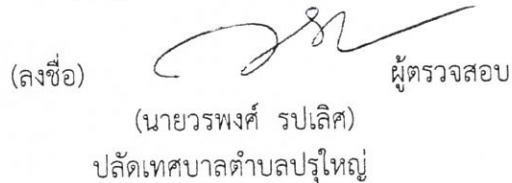 (ลงชื่อ) ผู้ตรวจสอบ
(นายวรพงศ์ รปเลิศ)
ปลัดเทศบาลตำบลปรุใหญ่